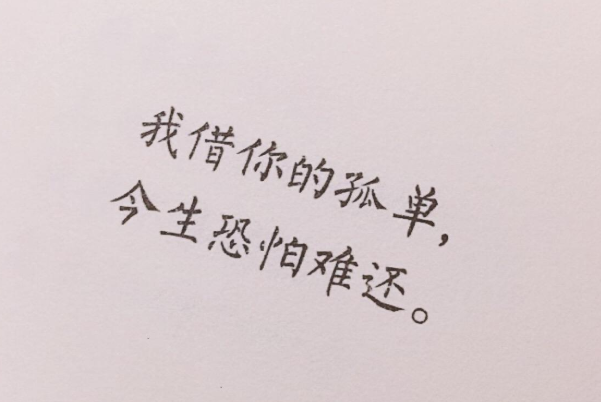 我借你的孤单，
今生恐怕难还。